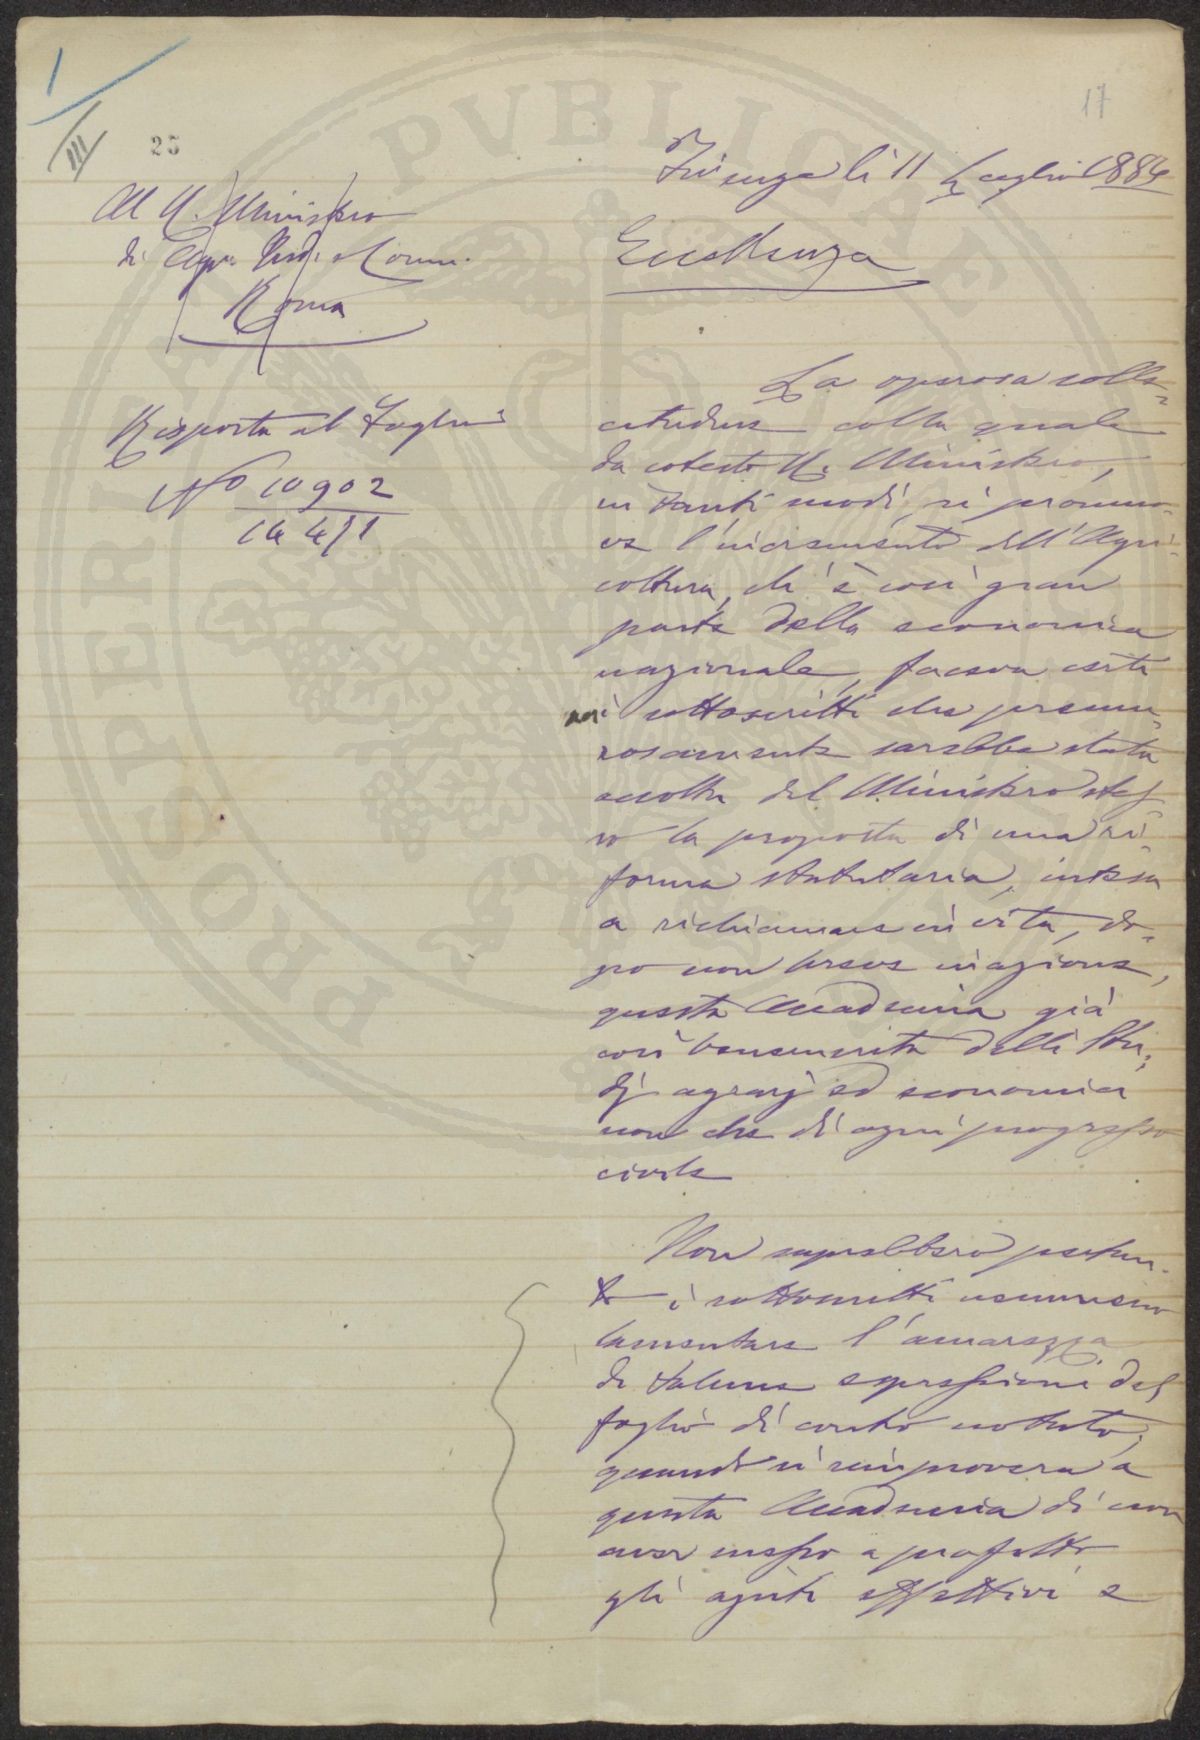 1
III
25
17
Firenze li 11 Luglio 1884
Al R. Ministero
di Agr. Ind. e Comm.
Roma
Eccellenza
Risposta al Foglio
N° 10902
14471
La operosa solle-
citudine colla quale
da cotesto R. Ministero,
in tanti modi, si promuo-
ve l'incremento dell'Agri-
coltura, ch'è così gran
parte della economia
nazionale, faceva certi
noi sottoscritti che premu-
rosamente sarebbe stata
accolta dal Ministero stes-
so la proposta di una ri-
forma statutaria, intesa
a richiamare in vita, do-
po non breve inazione,
questa Accademia già
così benemerita delli Stu-
dj agrarj ed economici
non che di ogni progresso
civile
Non saprebbero pertan-
to i sottoscritti nemmeno
lamentare l'amarezza
di talune espressioni del
foglio di contro notato,
quando si rimprovera a
questa Accademia di non
aver messo a profitto
gli ajuti effettivi e
PROSPERITATI PVBLICAE